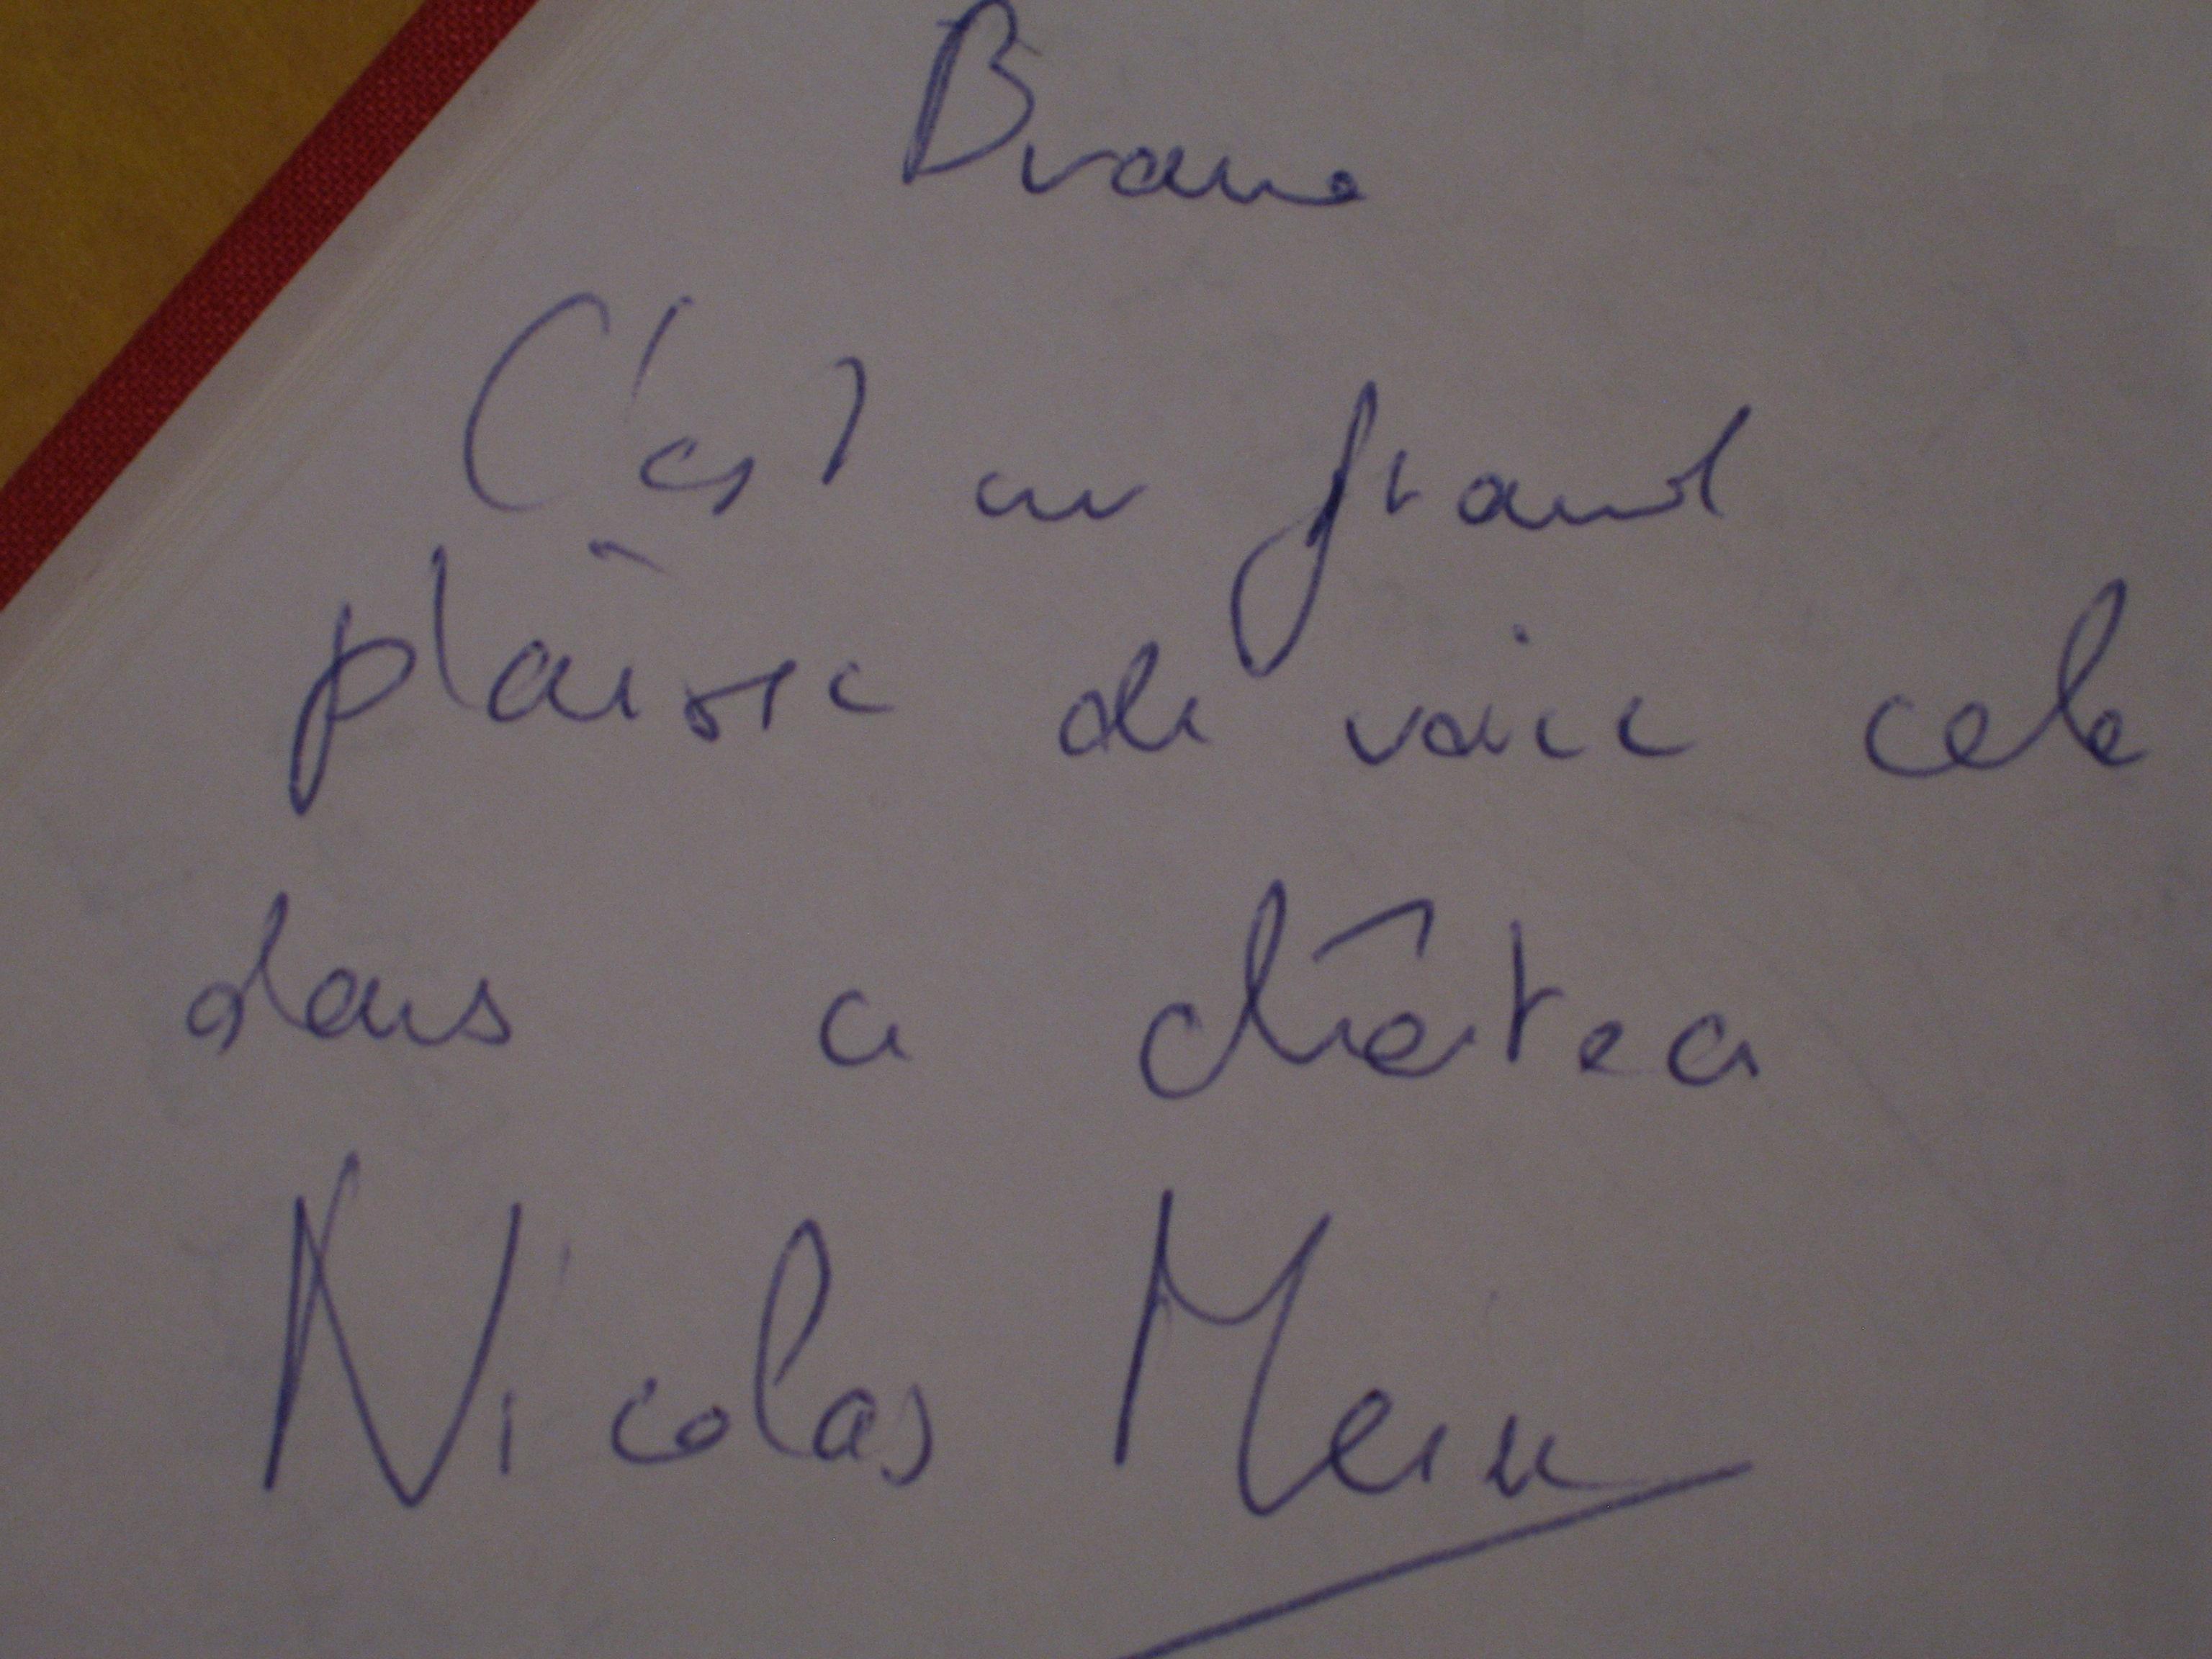 Bravo
C'est un grand
plaîsir de voir cela
dans ce château
Nicolas